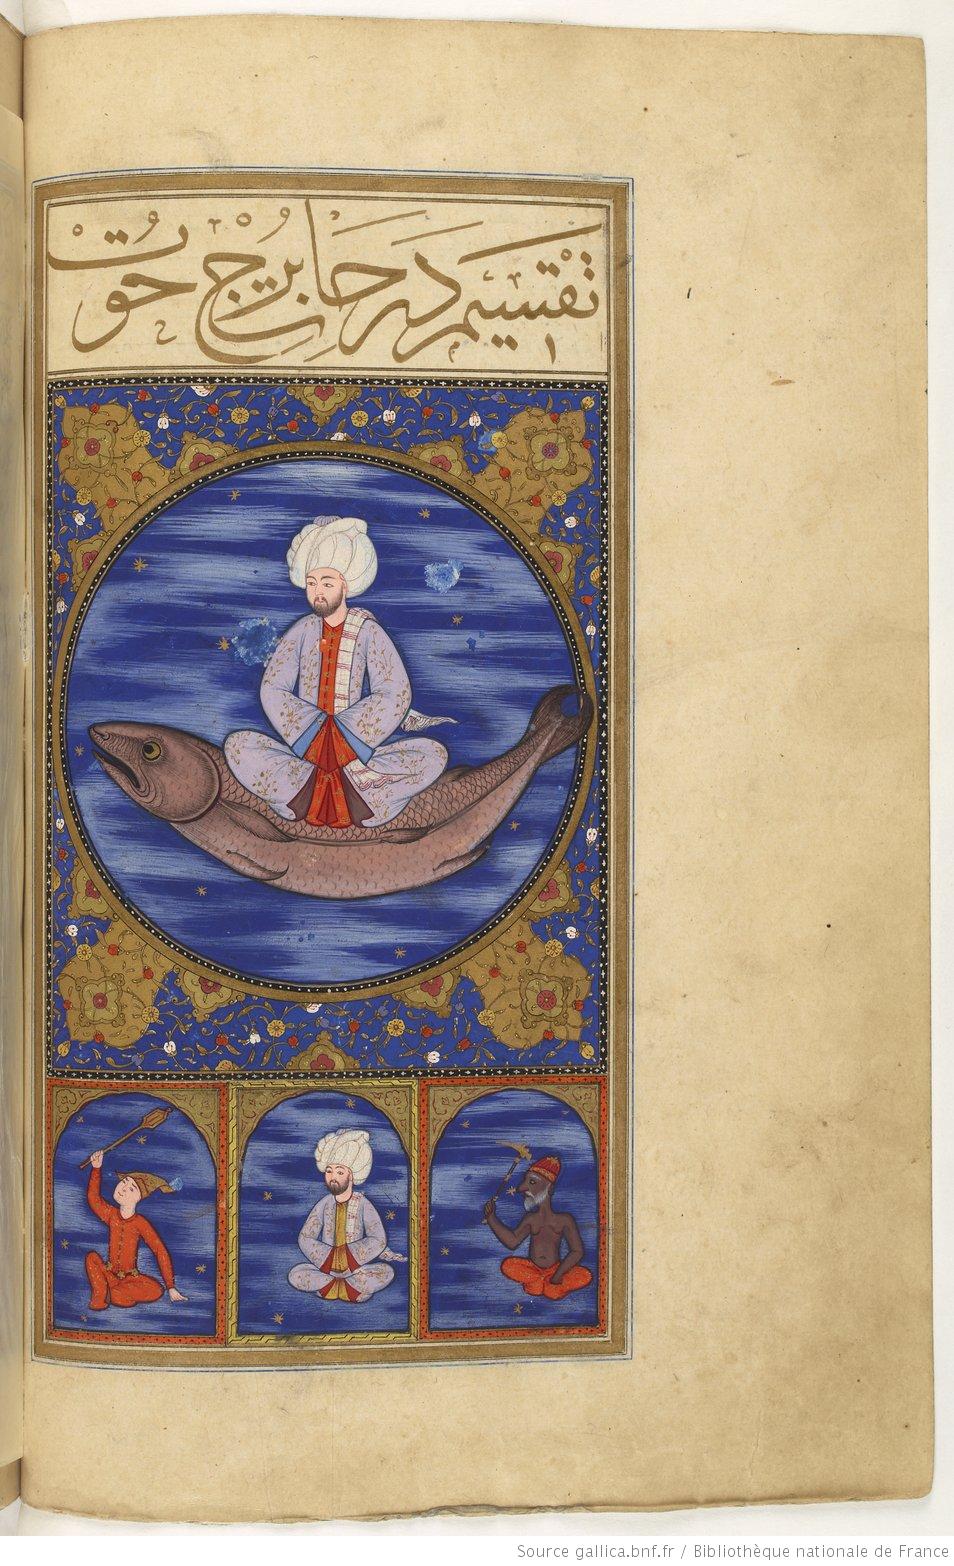 تقسيم درجات برج حوت
Source gallica.bnf.fr / Bibliothèque nationale de France